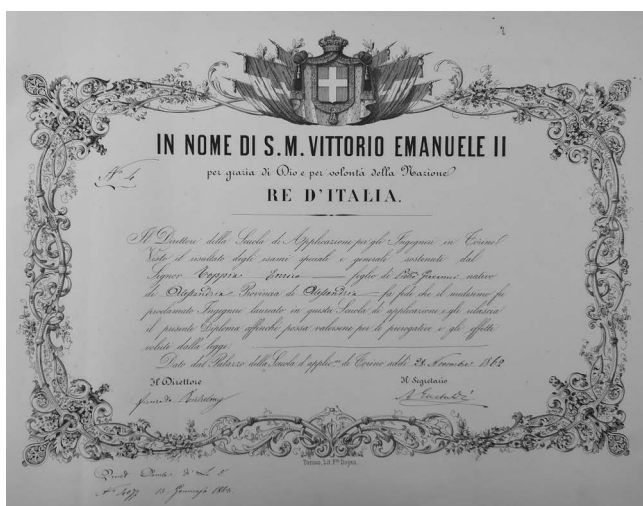 IN NOME DI S.M. VITTORIO EMANUELE II
N.° 4
per grazia di Dio e per volontà della Nazione
RE D'ITALIA.
Il Direttore della Scuola di Applicazione per gli Ingegneri in Torino
Visto il risultato degli esami speciali e generale sostenuti dal
Signor Coppia Enrico figlio di nativo
di Alessandria Provincia di Alessandria fa fede che il medesimo fu
proclamato Ingegnere laureato in questa Scuola di applicazione e gli rilascia
il presente Diploma affinchè possa valersene per le prerogative e gli effetti
voluti dalla legge.
Dato dal Palazzo della Scuola d'applic.ne di Torino addì 28 Novembre 1862
Il Direttore
Il Segretario
Torino, Lit. F.lli Doyen
N.° 13 Gennajo 1863.